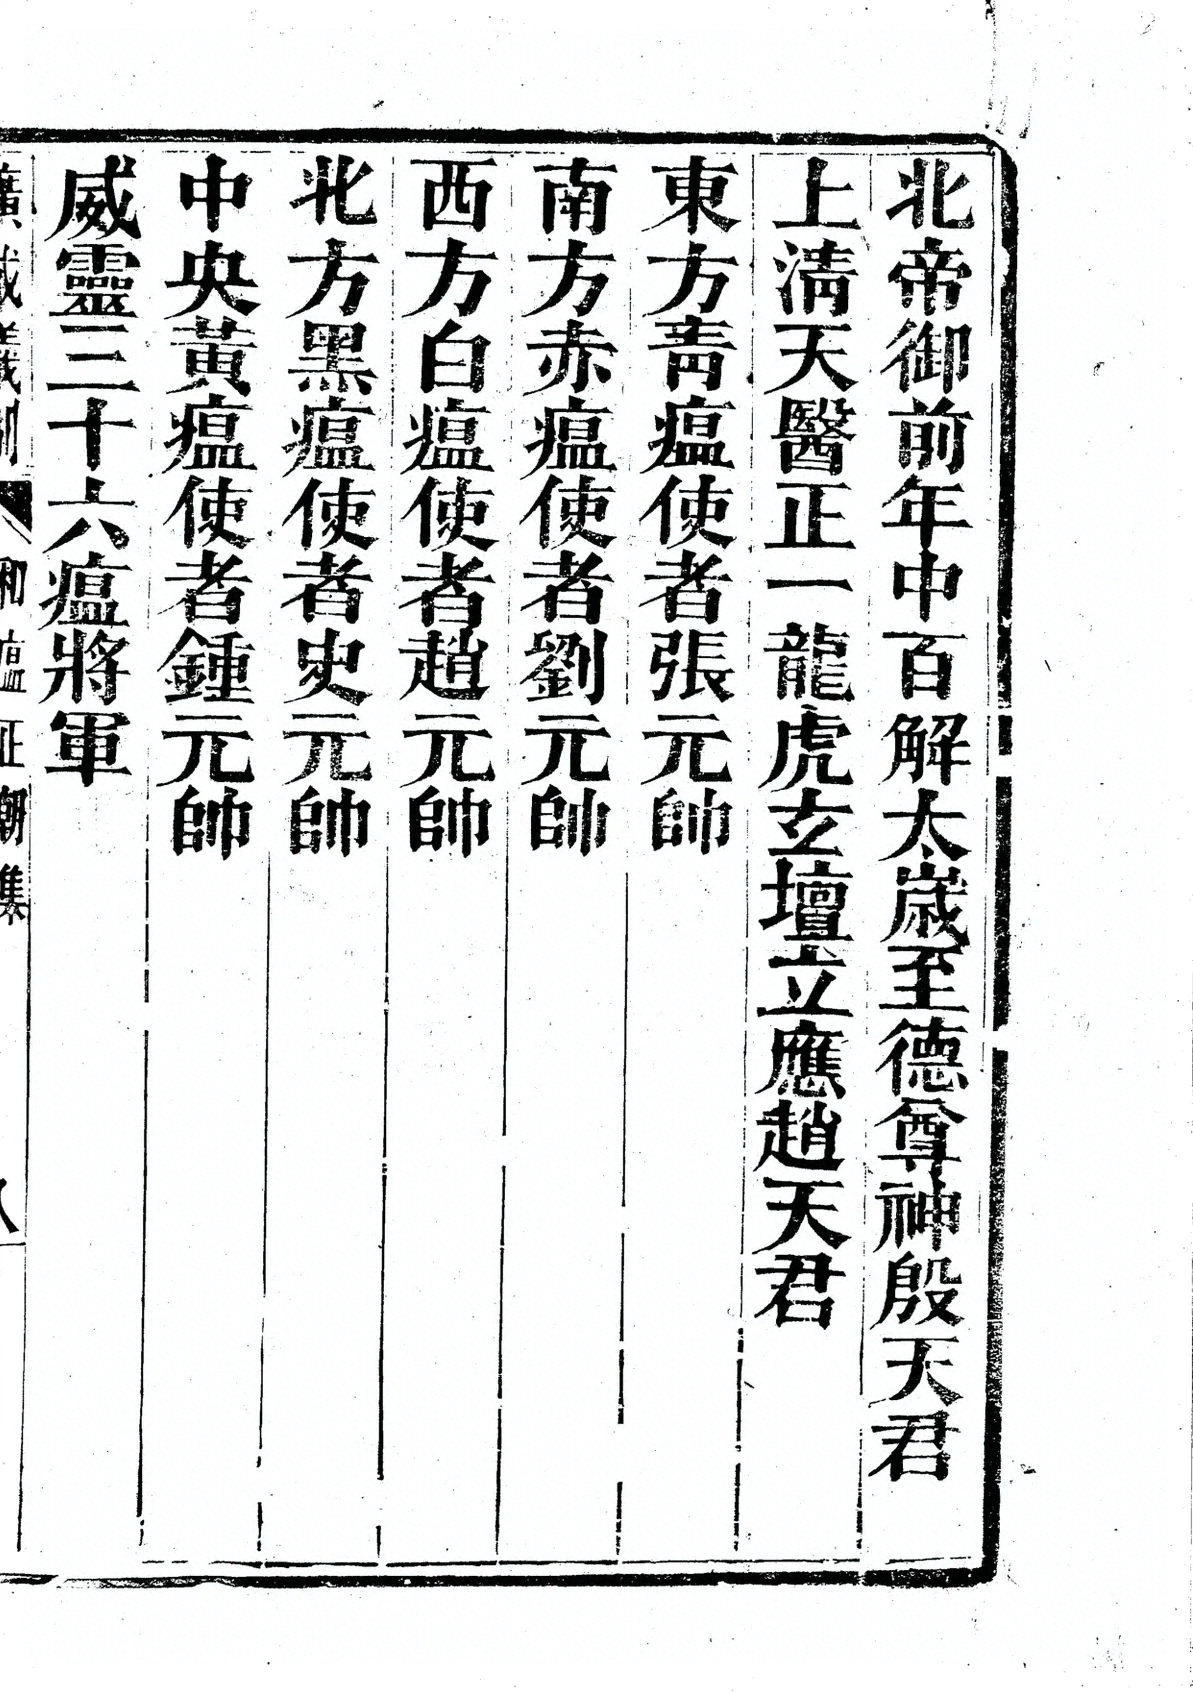 北帝御前年中百解太歲至德尊神殷天君
上淸天醫正一龍虎玄壇立應趙天君
東方靑瘟使者張元帥
南方赤瘟使者劉元帥
西方白瘟使者趙元帥
北方黑瘟使者史元帥
中央黃瘟使者鍾元帥
威靈三十六瘟將軍
廣成儀制 和瘟正朝集 八